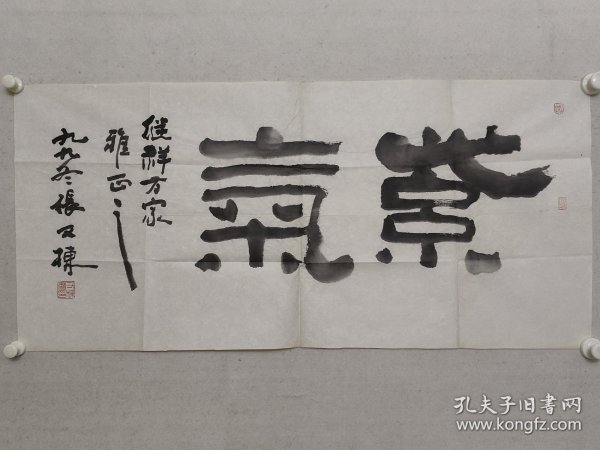 紫氣
继祥方家
雅正之
九九冬張又棟
孔夫子旧书网
www.kongfz.com